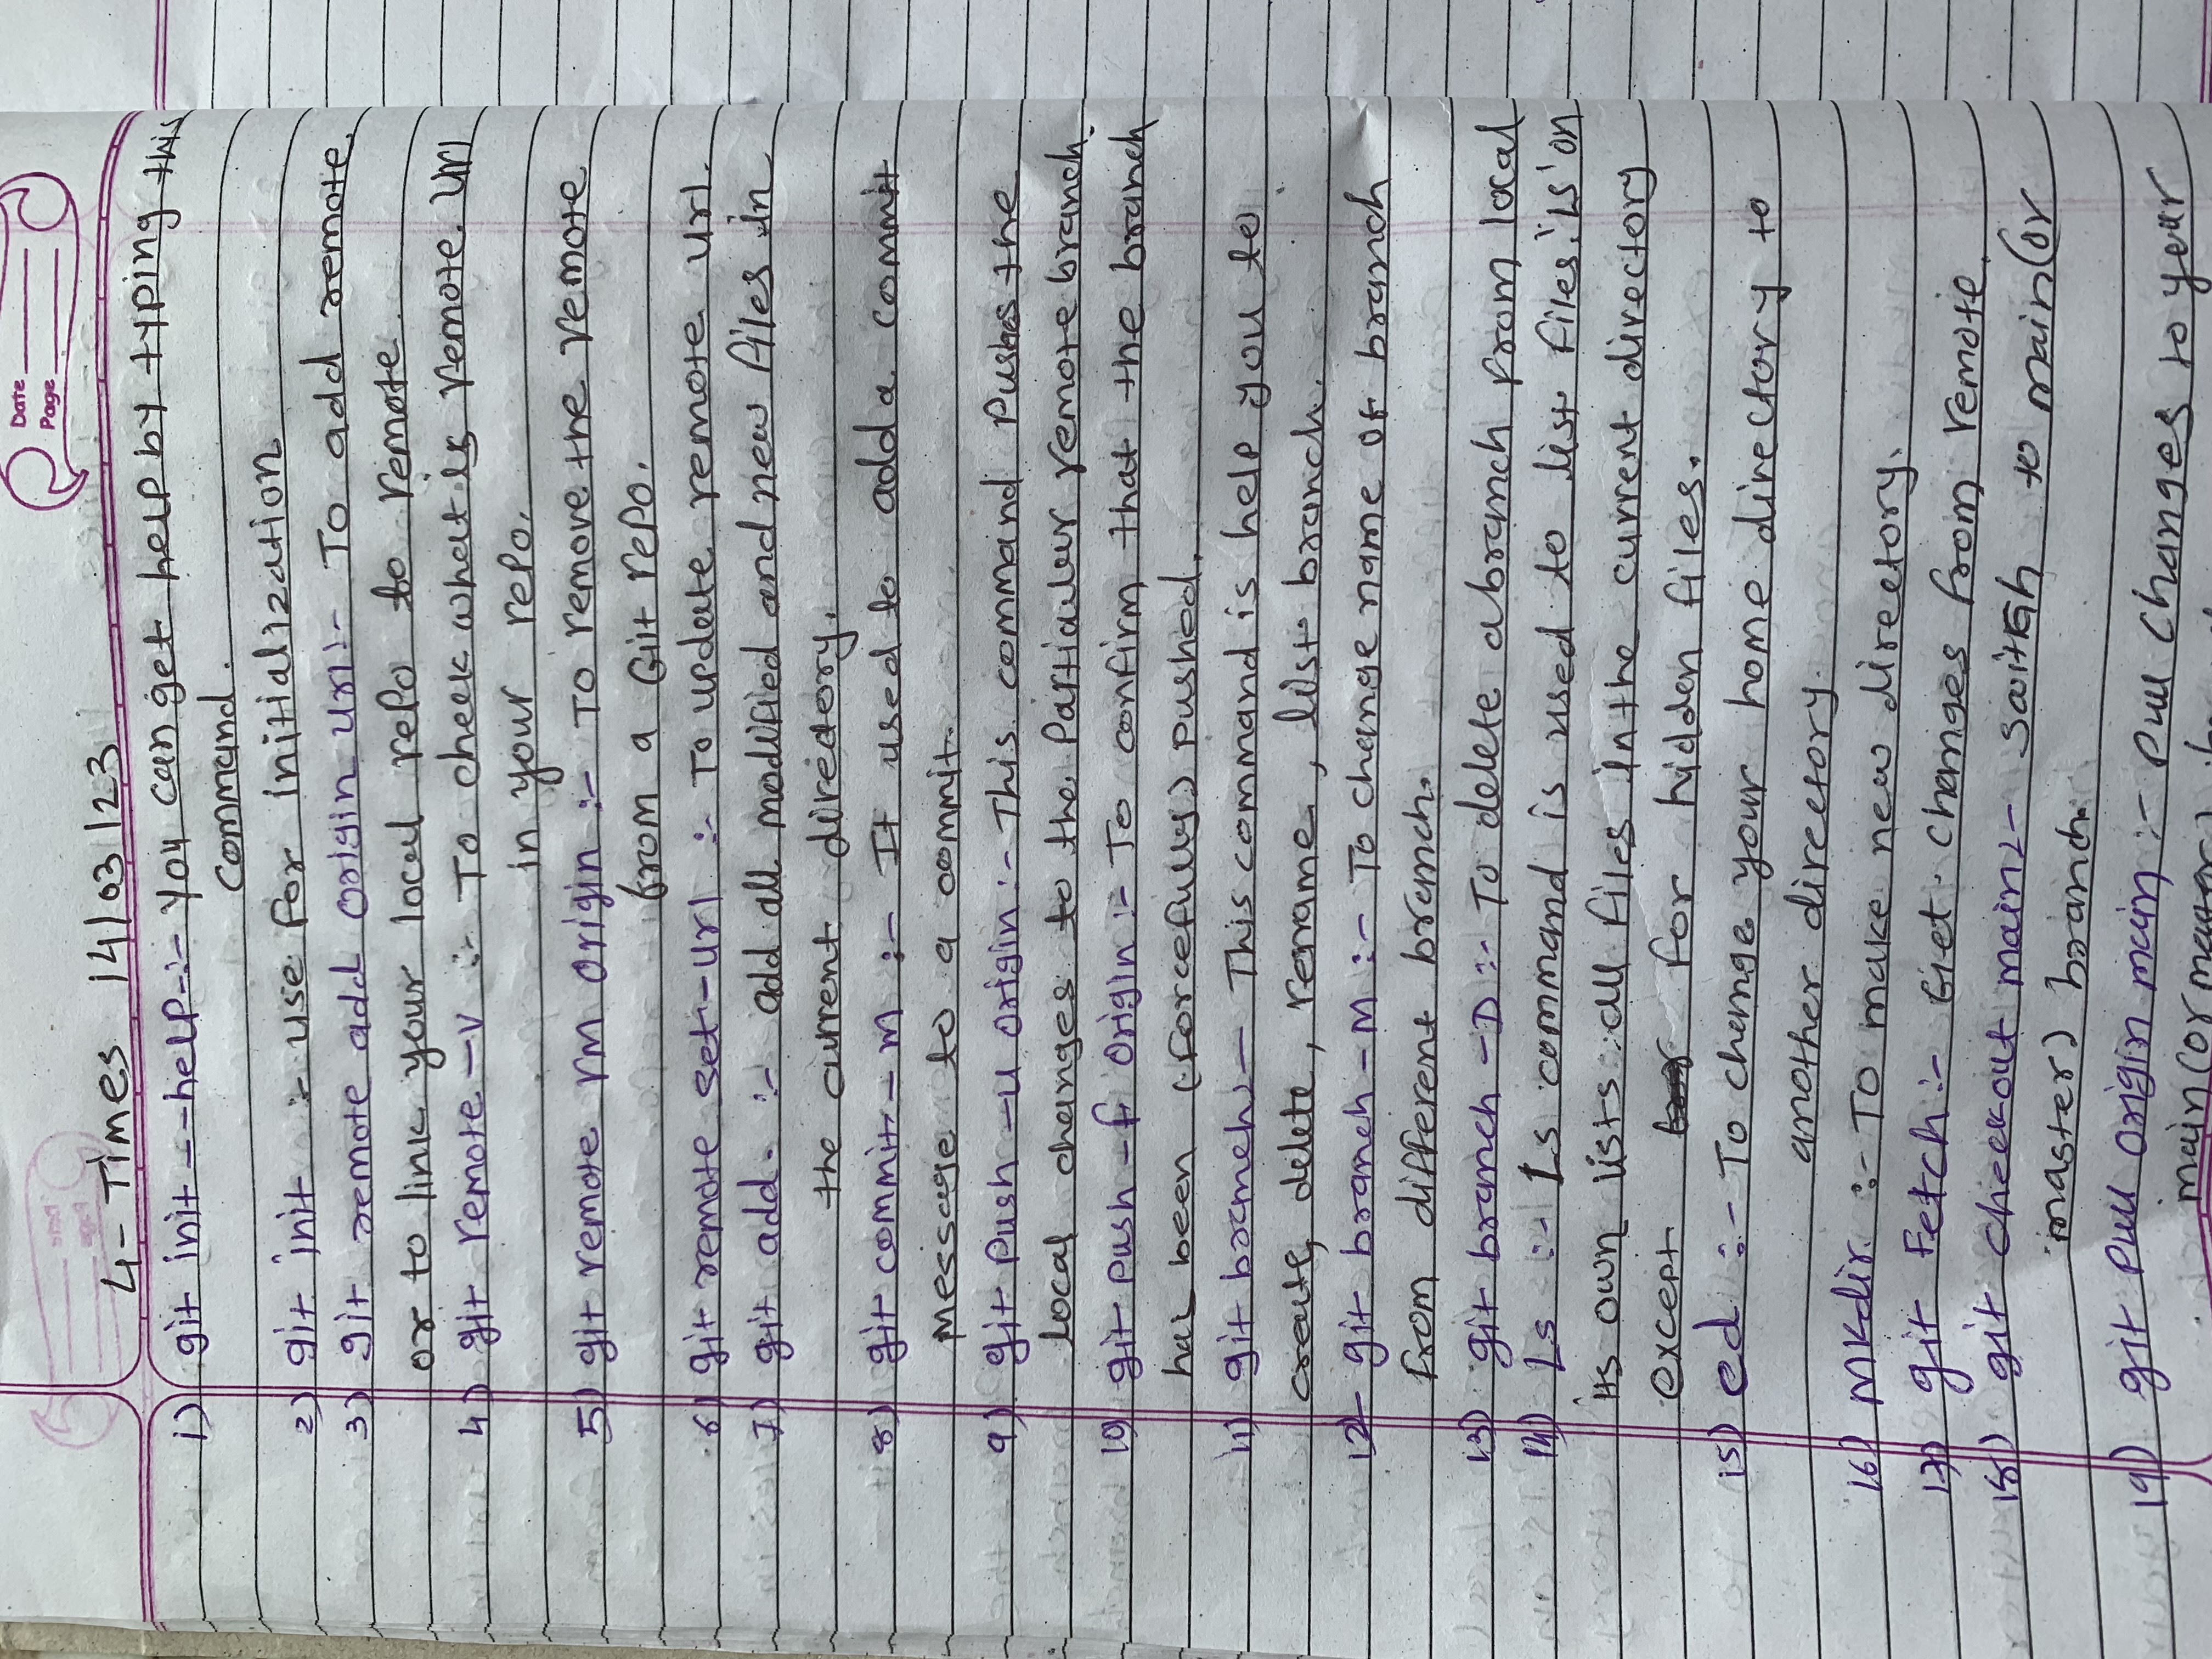 Date
Page
4- Times 14/03/23
1) git init --help :- You can get help by typing this
command.
2) git init :- use for initialization
3) git remote add origin url :- To add remote
or to link your local repo to remote
4) git remote -v :- To check what is remote url
in your repo.
5) git remote rm origin :- To remove the remote
from a Git repo.
6) git remote set-url :- To update remote url.
7) git add . :- add all modified and new files in
the current directory.
8) git commit -m :- It used to add a commit
message to a commit.
9) git push -u origin :- This command pushes the
local changes to the particular remote branch.
10) git push -f origin :- To confirm that the branch
has been (forcefully) pushed.
11) git branch :- This command is help you to
create, delete, rename, list branch.
12) git branch -M :- To change name of branch
from different branch.
13) git branch -D :- To delete a branch from local
14) Ls :- Ls command is used to list files. 'Ls' on
its own lists all files in the current directory
except for hidden files.
15) cd :- To change your home directory to
another directory.
16) Mkdir :- To make new directory.
17) git Fetch :- Get changes from remote.
18) git checkout main :- Switch to main (or
master) branch.
19) git pull origin main :- pull changes to your
main (or master)